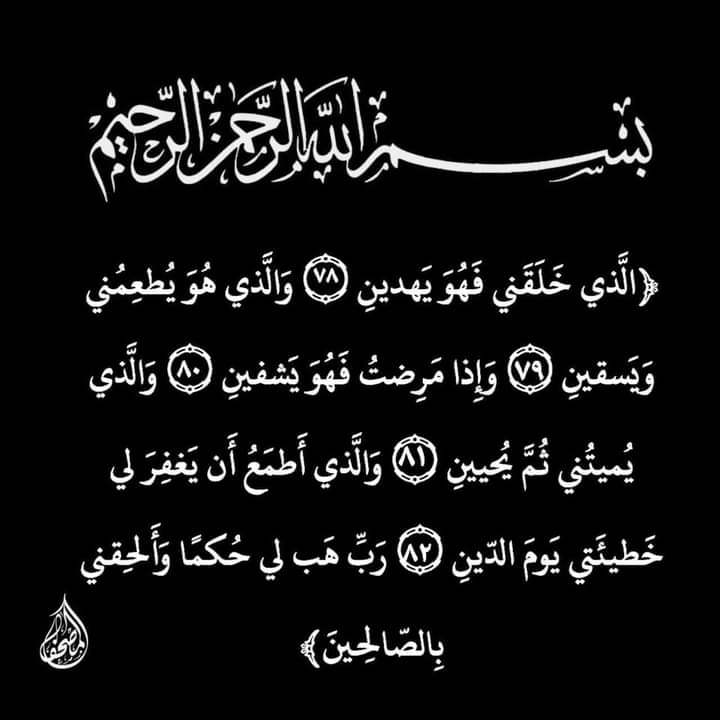 بسم الله الرحمن الرحيم
﴿الَّذي خَلَقَني فَهُوَ يَهدينِ ٧٨ وَالَّذي هُوَ يُطعِمُني
وَيَسقينِ ٧٩ وَإِذا مَرِضتُ فَهُوَ يَشفينِ ٨٠ وَالَّذي
يُميتُني ثُمَّ يُحيينِ ٨١ وَالَّذي أَطمَعُ أَن يَغفِرَ لي
خَطيئَتي يَومَ الدّينِ ٨٢ رَبِّ هَب لي حُكمًا وَأَلحِقني
بِالصّالِحينَ﴾
المصحف